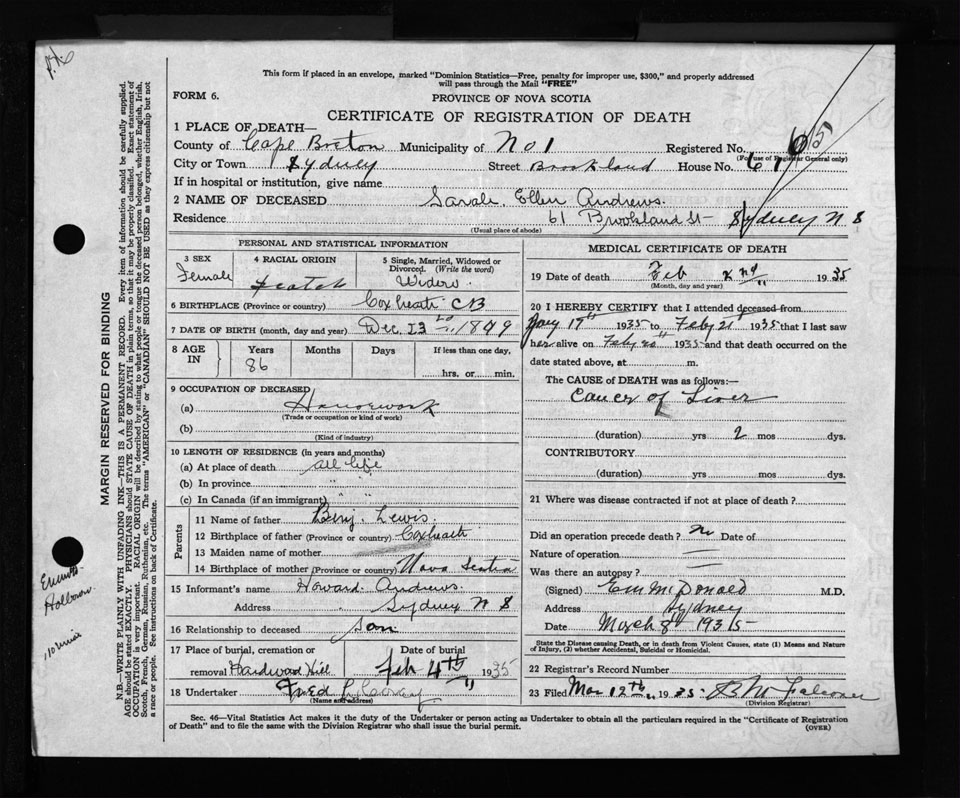 This form if placed in an envelope, marked "Dominion Statistics—Free, penalty for improper use, $300," and properly addressed
will pass through the Mail "FREE"
FORM 6.
PROVINCE OF NOVA SCOTIA
CERTIFICATE OF REGISTRATION OF DEATH
1 PLACE OF DEATH—
County of Cape Breton Municipality of No 1 Registered No. 65
(For use of Registrar General only)
City or Town Sydney Street Brookland House No. 61
If in hospital or institution, give name
2 NAME OF DECEASED Sarah Ellen Andrews.
Residence 61 Brookland St Sydney N S
(Usual place of abode)
PERSONAL AND STATISTICAL INFORMATION
3 SEX Female
4 RACIAL ORIGIN Scotch
5 Single, Married, Widowed or Divorced. (Write the word) Widow
6 BIRTHPLACE (Province or country) Coxheath CB
7 DATE OF BIRTH (month, day and year) Dec 1849
8 AGE IN Years Months Days If less than one day,
86 hrs. or min.
9 OCCUPATION OF DECEASED
(a) Housework
(Trade or occupation or kind of work)
(b)
(Kind of industry)
10 LENGTH OF RESIDENCE (in years and months)
(a) At place of death all life
(b) In province " "
(c) In Canada (if an immigrant) " "
Parents
11 Name of father Benj. Lewis.
12 Birthplace of father (Province or country) Coxheath
13 Maiden name of mother
14 Birthplace of mother (Province or country) Nova Scotia
15 Informant's name Howard Andrews.
Address Sydney N S
16 Relationship to deceased Son
17 Place of burial, cremation or removal Hardwood Hill
Date of burial Feb 4th 1935
18 Undertaker Fred
(Name and address)
MEDICAL CERTIFICATE OF DEATH
19 Date of death Feb 2nd 1935
(Month, day and year)
20 I HEREBY CERTIFY that I attended deceased from
Jany 17th 1935 to Feby 21st 1935 that I last saw
her alive on Feby 20th 1935 and that death occurred on the
date stated above, at m.
The CAUSE of DEATH was as follows:—
Cancer of Liver
(duration) yrs 2 mos dys.
CONTRIBUTORY
(duration) yrs mos dys.
21 Where was disease contracted if not at place of death?
Did an operation precede death? no Date of
Nature of operation —
Was there an autopsy? —
(Signed) E M McDonald M.D.
Address Sydney
Date March 8th 1935
State the Disease causing Death, or in death from Violent Causes, state (1) Means and Nature
of Injury, (2) whether Accidental, Suicidal or Homicidal.
22 Registrar's Record Number
23 Filed Mar 12th 1935
(Division Registrar)
Sec. 46—Vital Statistics Act makes it the duty of the Undertaker or person acting as Undertaker to obtain all the particulars required in the "Certificate of Registration
of Death" and to file the same with the Division Registrar who shall issue the burial permit.
(OVER)
MARGIN RESERVED FOR BINDING
N.B.—WRITE PLAINLY WITH UNFADING INK—THIS IS A PERMANENT RECORD. Every item of information should be carefully supplied.
AGE should be stated EXACTLY. PHYSICIANS should STATE CAUSE OF DEATH in plain terms, so that it may be properly classified. Exact statement of
OCCUPATION is very important. RACIAL ORIGIN will be described by stating to what people or tongue the deceased person belonged, whether English, Irish,
Scotch, French, German, Russian, Ruthenian, etc. The terms "AMERICAN" or "CANADIAN" SHOULD NOT BE USED as they express citizenship but not
a race or people. See Instructions on back of Certificate.